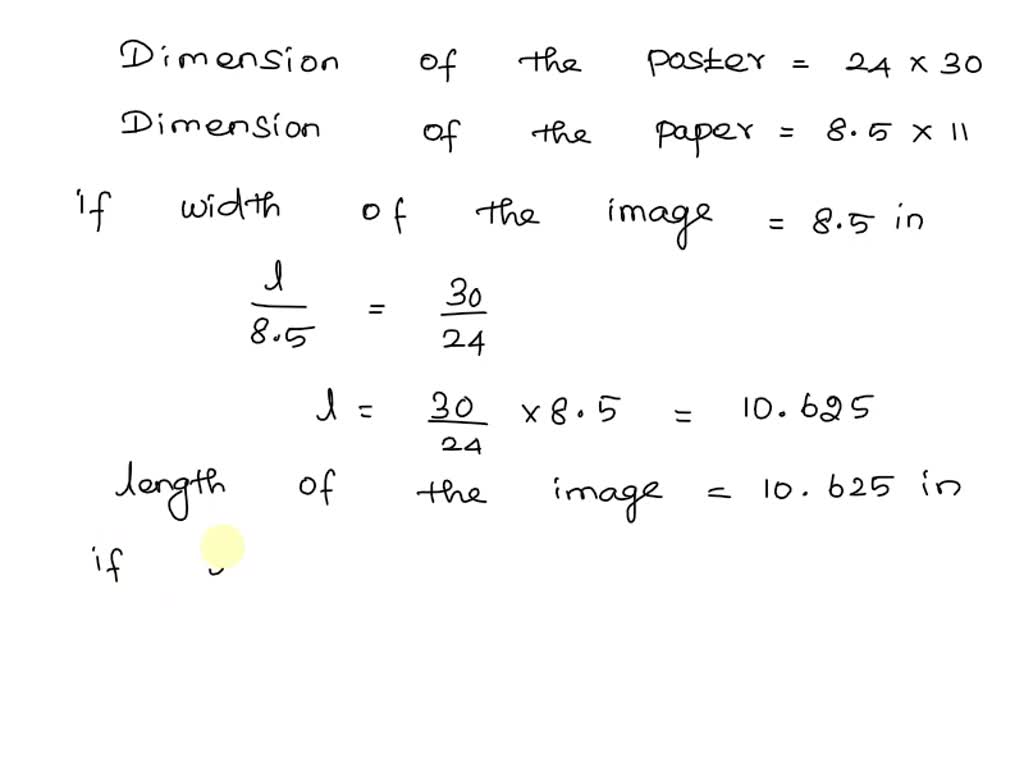 Dimension of the poster = 24 x 30
Dimension of the paper = 8.5 x 11
if width of the image = 8.5 in
l/8.5 = 30/24
l = 30/24 x 8.5 = 10.625
length of the image = 10.625 in
if